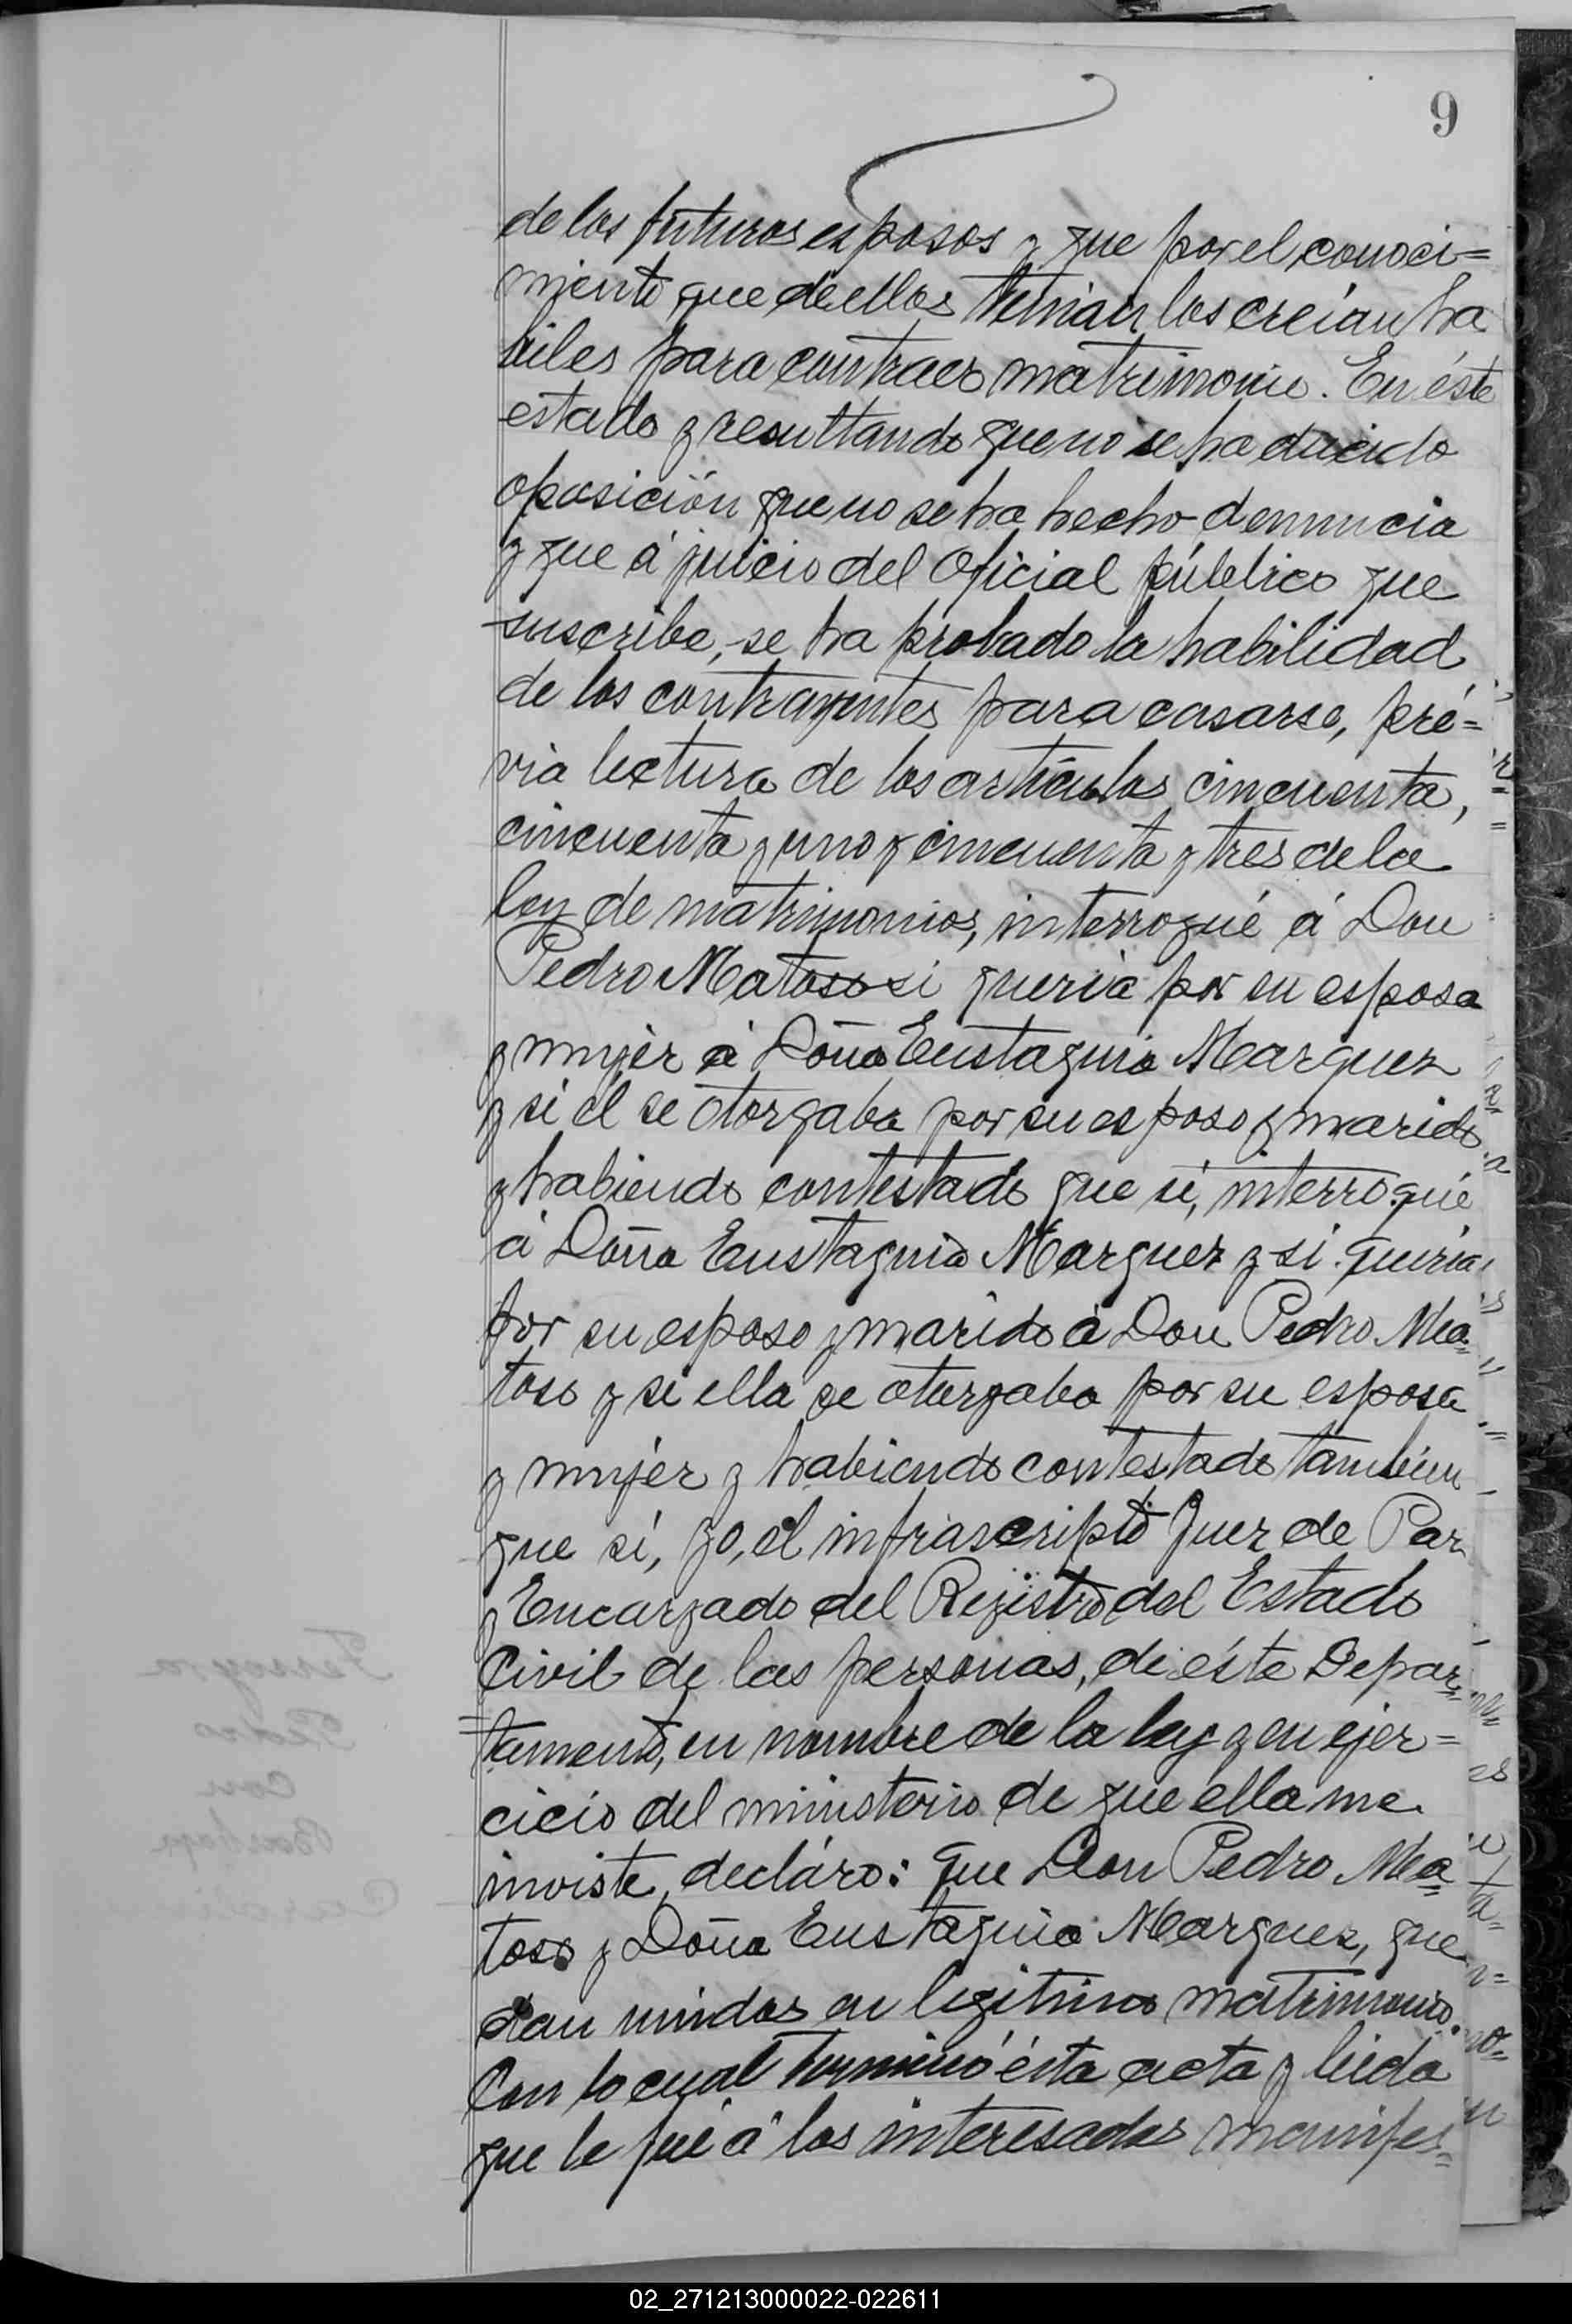 9
de los futuros esposos y que por el conoci=
miento que de ellos tenian los creían ha
biles para contraer matrimonio. En éste
estado y resultando que no se ha ducido
oposición que no se ha hecho denuncia
y que á juicio del Oficial público que
suscribe, se ha probado la habilidad
de los contrayentes para casarse, pré=
via lectura de los artículos cincuenta,
cincuenta y uno y cincuenta y tres de la
ley de matrimonios, interrogué á Don
Pedro Matoso si queria por su esposa
y mujér á Doña Eustaquia Marquez
y si él se otorgaba por su esposo y marido
y habiendo contestado que sí, interrogué
á Doña Eustaquia Marquez y si queria
por su esposo y marido á Don Pedro Ma=
toso y si ella se otorgaba por su esposa
y mujér y habiendo contestado tambien
que sí, yo, el infrascripto Juez de Paz
y Encargado del Registro del Estado
Civil de las personas, de éste Depar=
tamento, en nombre de la ley y en ejer=
cicio del ministerio de que ella me
inviste, decláro: que Don Pedro Ma=
toso y Doña Eustaquia Marquez, que
dan unidos en legitimo matrimonio.
Con lo cual terminó ésta acta y leida
que le fué á los interesados manifes=
Ferreyra
Pedro
con
02_271213000022-022611